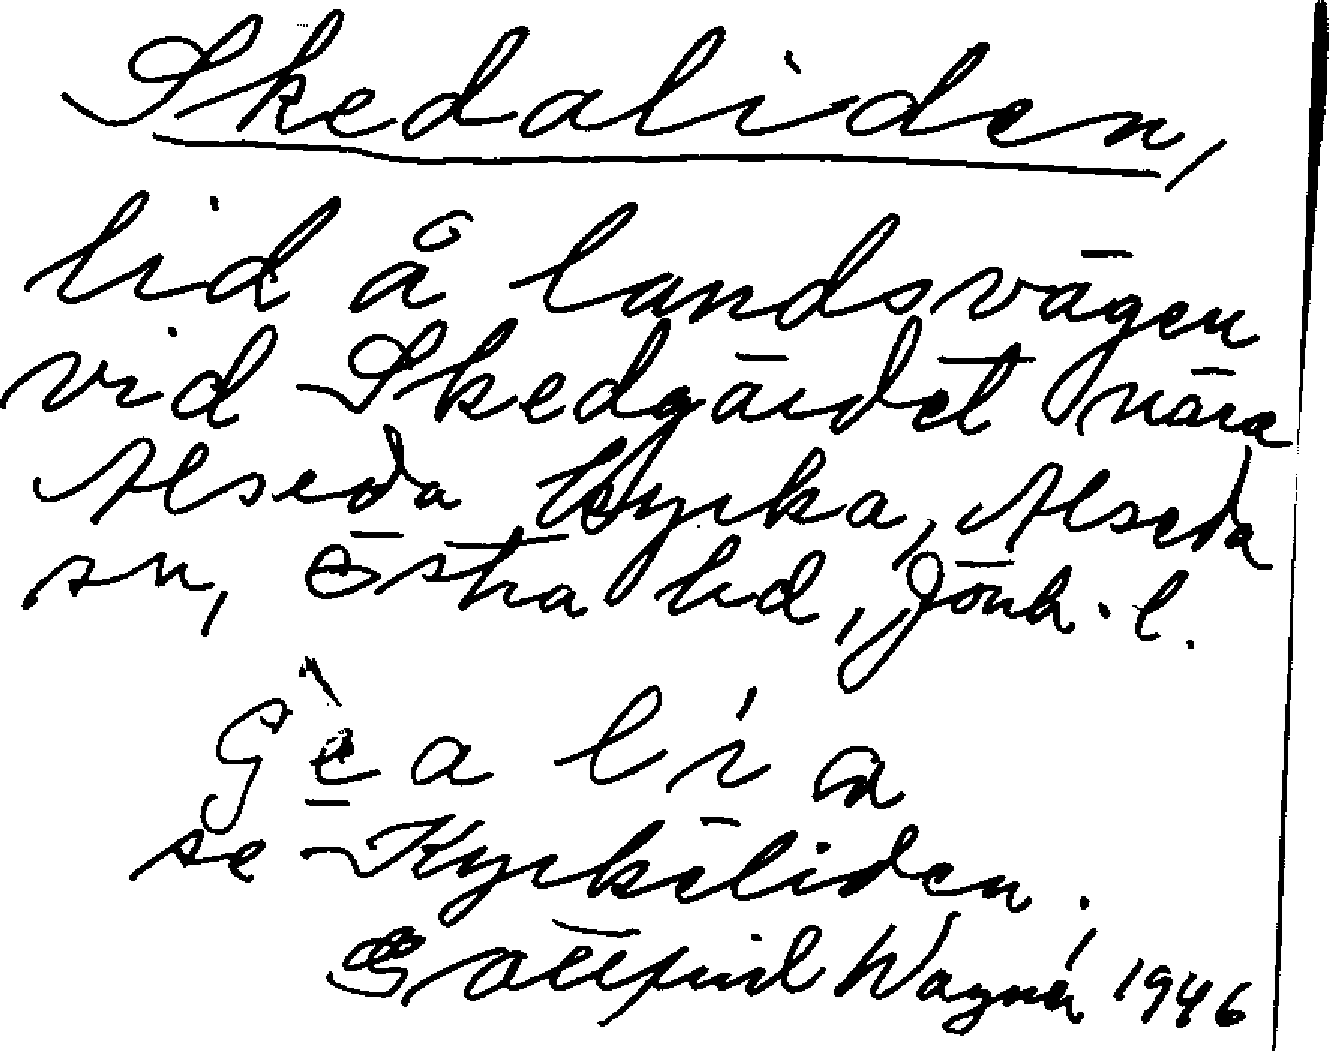 Skedaliden,
lid å landsvägen
vid Skedgärdet nära
Alseda kyrka, Alseda
sn, Östra hd, Jönk. l.
Gèa lía
se Kyrkeliden.
Gottfrid Wagnér 1946